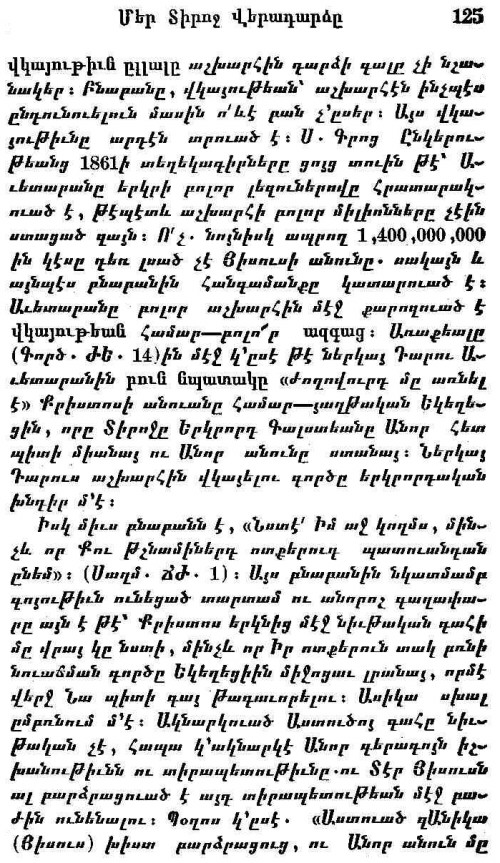 Մեր Տիրոջ Վերադարձը 125
վկայութիւն ըլլալը աշխարհին դարձի գալը չի նշա-
նակեր։ Բնաբանը, վկայութեան՝ աշխարհէն ինչպէս
ընդունուելուն մասին ո՛ևէ բան չ՚ըսեր։ Այս վկա-
յութիւնը արդէն տրուած է։ Ս. Գրոց Ընկերու-
թեանց 1861ի տեղեկագիրները ցոյց տուին թէ՝ Ա-
ւետարանը երկրի բոլոր լեզուներովը հրատարակ-
ուած է, թէպէտև աշխարհի բոլոր միլիոնները չէին
ստացած զայն։ Ո՛չ. նոյնիսկ ապրող 1,400,000,000
ին կէսը դեռ լսած չէ Յիսուսի անունը. սակայն և
այնպէս բնաբանին հանգամանքը կատարուած է։
Աւետարանը բոլոր աշխարհին մէջ քարոզուած է
վկայութեան համար—բոլո՛ր ազգաց։ Առաքեալը
(Գործ. ԺԵ. 14)ին մէջ կ՚ըսէ թէ ներկայ Դարու Ա-
ւետարանին բուն նպատակը «Ժողովուրդ մը առնել
է» Քրիստոսի անուանը համար—յաղթական Եկեղե-
ցին, որը Տիրոջը Երկրորդ Գալստեանը Անոր հետ
պիտի միանայ ու Անոր անունը ստանայ։ Ներկայ
Դարուս աշխարհին վկայելու գործը երկրորդական
խնդիր մ՚է։
Իսկ միւս բնաբանն է, «Նստէ՛ Իմ աջ կողմս, մին-
չև որ Քու թշնամիներդ ոտքերուդ պատուանդան
ընեմ»։ (Սաղմ. ՃԺ. 1)։ Այս բնաբանին նկատմամբ
գոյութիւն ունեցած տարտամ ու անորոշ գաղափա-
րը այն է թէ՝ Քրիստոս երկնից մէջ նիւթական գահի
մը վրայ կը նստի, մինչև որ Իր ոտքերուն տակ բռնի
նուաճման գործը Եկեղեցիին միջոցաւ լրանայ, որմէ
վերջ Նա պիտի գայ թագաւորելու։ Ասիկա սխալ
ըմբռնում մ՚է։ Ակնարկուած Աստուծոյ գահը նիւ-
թական չէ, հապա կ՚ակնարկէ Անոր գերագոյն իշ-
խանութիւնն ու տիրապետութիւնը. ու Տէր Յիսուսն
ալ բարձրացուած է այդ տիրապետութեան մէջ բա-
ժին ունենալու։ Պօղոս կ՚ըսէ. «Աստուած զԱնիկա
(Յիսուս) խիստ բարձրացուց, ու Անոր անուն մը